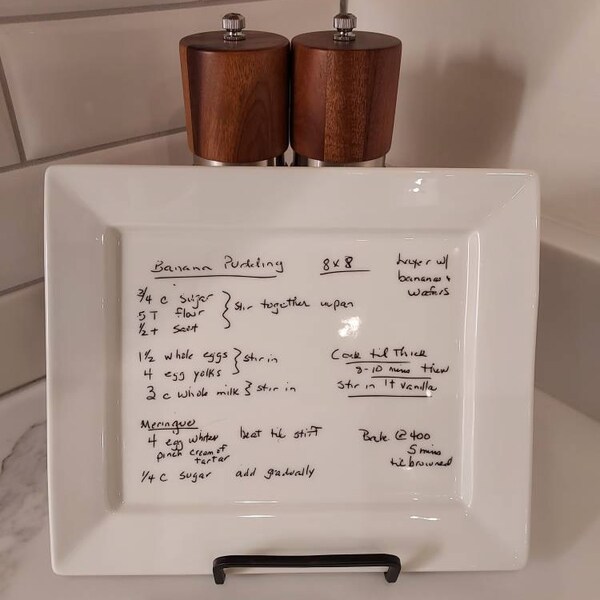 Banana Pudding 8x8
Layer w/
bananas +
wafers
3/4 c sugar
5 T flour } stir together in pan
1/2 t salt
1 1/2 whole eggs } stir in
4 egg yolks
3 c whole milk } stir in
Cook til thick
8-10 mins then
stir in 1t vanilla
Meringue
4 egg whites beat til stiff
pinch cream of
tartar
1/4 c sugar add gradually
Bake @ 400
5 mins
til browned